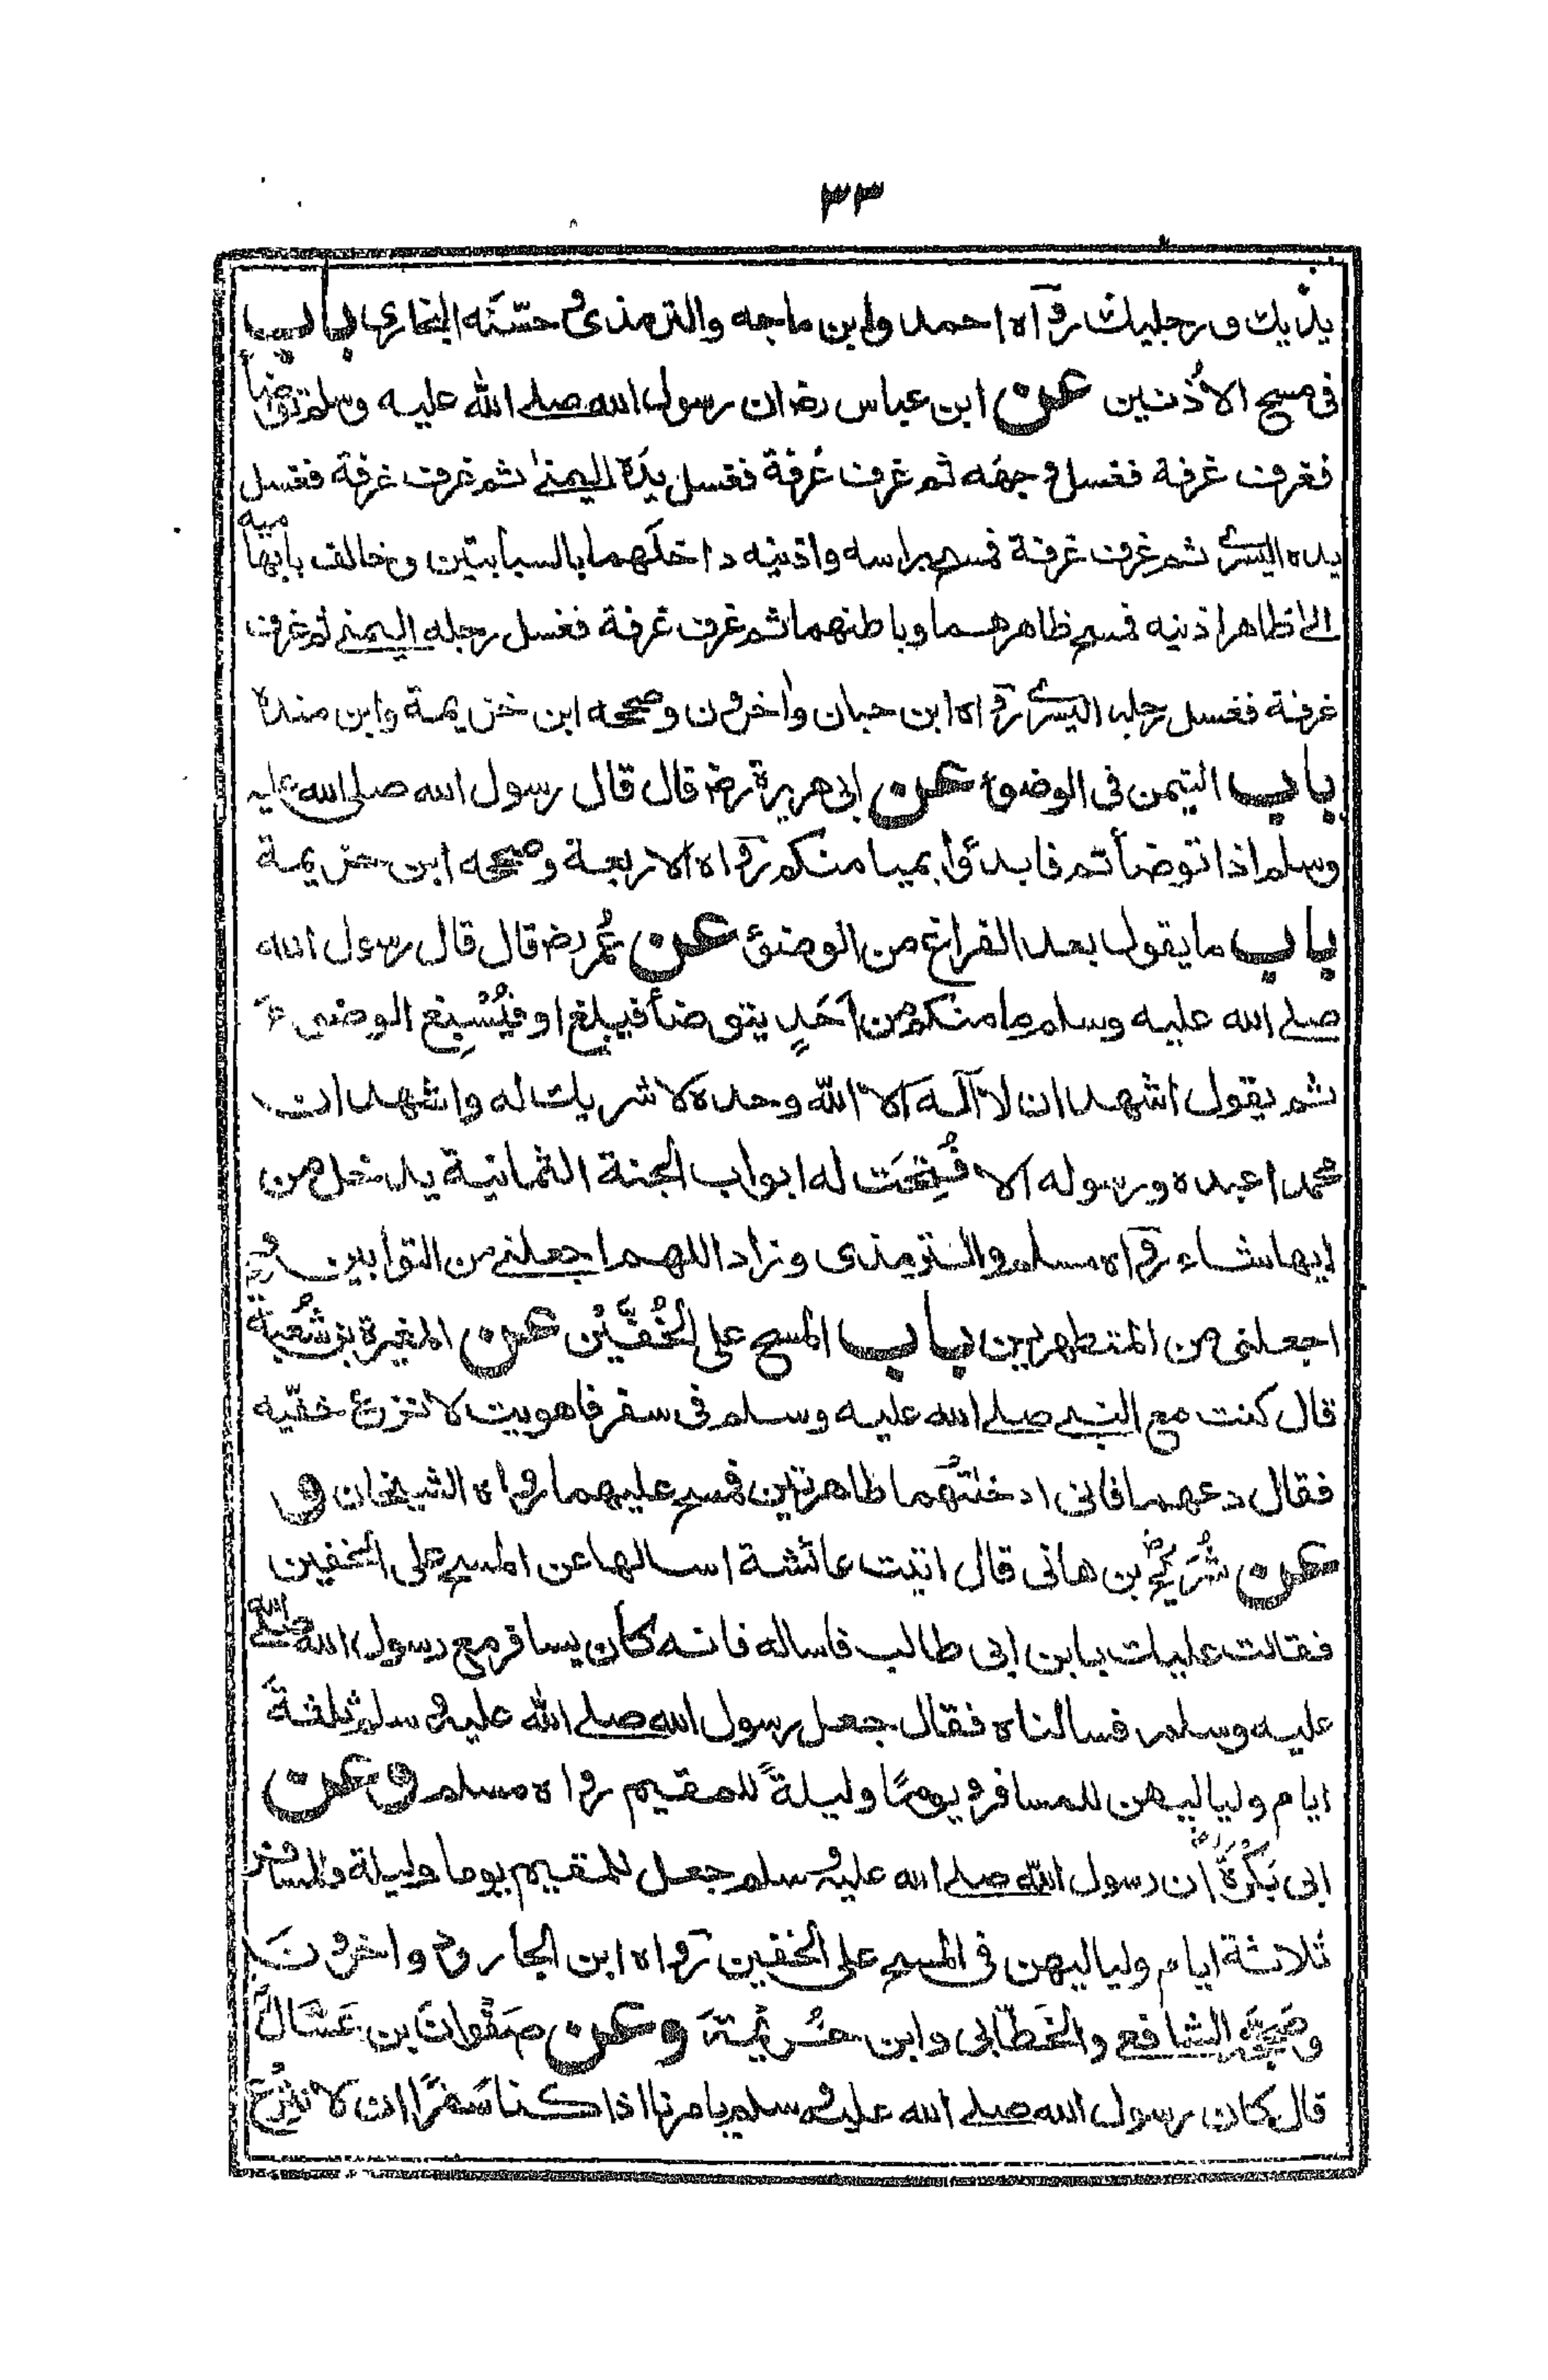 ٣٣
يديك ورجليك رواه احمد وابن ماجه والترمذى وحسّنَه البخارى باب
فى مسح الاُذنين عن ابن عباس رض ان رسول الله صلے الله عليه وسلم توضأ
فغرف غرفة فغسل وجهَه ثم غرف غُرفة فغسل يدَه اليمنىٰ ثم غرف غرفة فغسل
يده اليسرے ثم غرف غرفة فمسح براسه واذنيه داخلَهما بالسبابتين وخالف بابهاميه
الىٰ ظاهر اذنيه فمسح ظاهرهما وباطنهما ثم غرف غرفة فغسل رجله اليمنے ثم غرف
غرفة فغسل رجله اليسرے رواه ابن حبان واٰخرون وصححه ابن خزيمة وابن مندة
باب التيمن فى الوضوء عن ابى هريرة رض قال قال رسول الله صلى الله عليه
وسلم اذا توضأتم فابدؤا بميامنكم رواه الاربعة وصححه ابن خزيمة
باب ما يقول بعد الفراغ من الوضوء عن عُمر رض قال قال رسول الله
صلے الله عليه وسلم ما منكم من اَحَدٍ يتوضأ فيبلغ او فيُسْبِغ الوضوءَ
ثم يقول اشهد ان لا آلٰه الا اللّٰه وحده لا شريك له واشهد ان
محمدا عبده ورسوله الا فُتِحَت له ابواب الجنة الثمانية يدخل من
ايها شاء رواه مسلم والترمذى وزاد اللهم اجعلنے من التوابين و
اجعلنى من المتطهرين باب المسح على الخُفَّيْن عن المغيرة بن شُعبة
قال كنت مع النبے صلے الله عليه وسلم فى سفر فاهويت لانزع خفّيه
فقال دعهما فانى ادخلتُهما طاهرتين فمسح عليهما رواه الشيخان و
عن شُرَيح بن هانى قال اتيت عائشة اسالها عن المسح على الخفين
فقالت عليك بابن ابى طالب فاساله فانه كان يسافر مع رسول الله صلے الله
عليه وسلم فسالناه فقال جعل رسول الله صلے الله عليه وسلم ثلٰثةَ
ايام ولياليهن للمسافر ويومًا وليلةً للمقيم رواه مسلم وعن
ابى بَكْرَةَ ان رسول الله صلے الله عليه وسلم جعل للمقيم يوما وليلة وللمسافر
ثلاثة ايام ولياليهن فى المسح على الخفين رواه ابن الجارود واخرونَ
وصححَه الشافعے والخَطّابى وابن خُزَيْمَةَ وعن صَفْوانَ بن عَسَّالٍ
قال كان رسول الله صلے الله عليه وسلم يامرنا اذا كنا سَفرًا ان لا ننزع